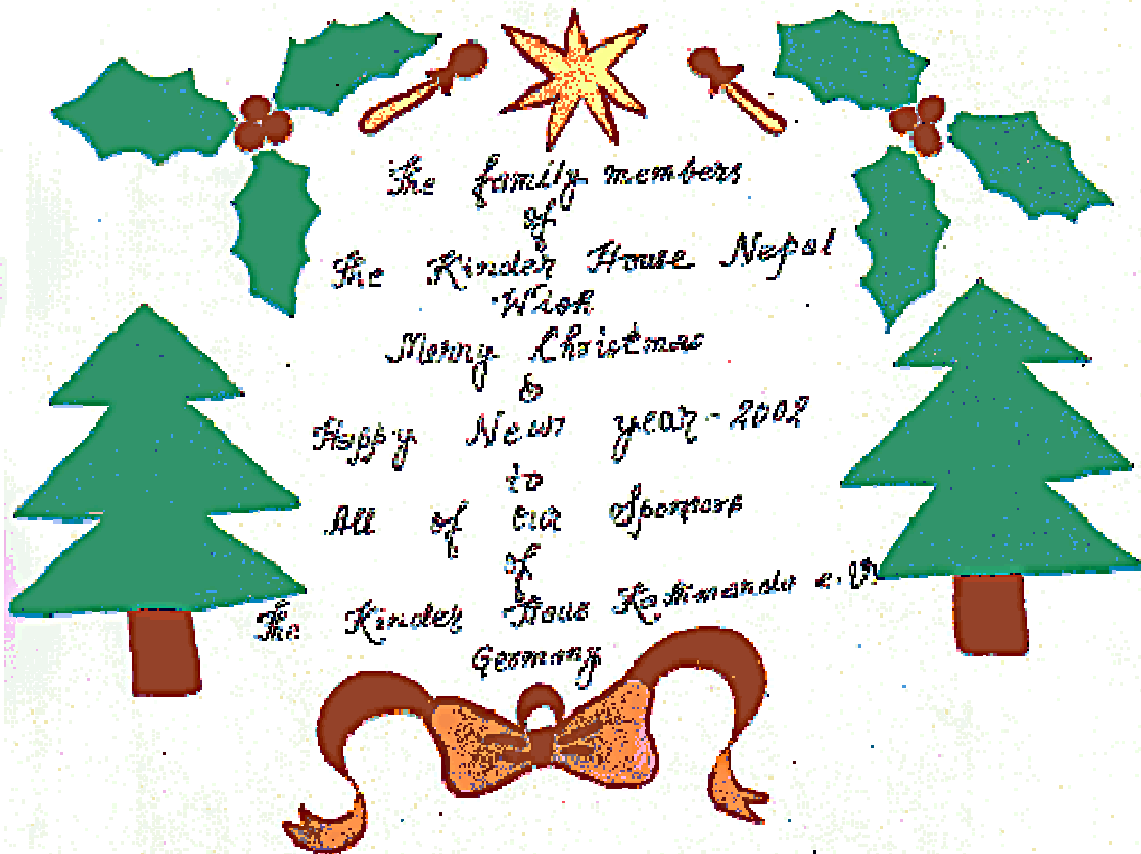 The family members
of
The Kinder House Nepal
Wish
Merry Christmas
&
Happy New year - 2002
to
All of our Sponsors
of
The Kinder Hous Katimando e.V.
Germany